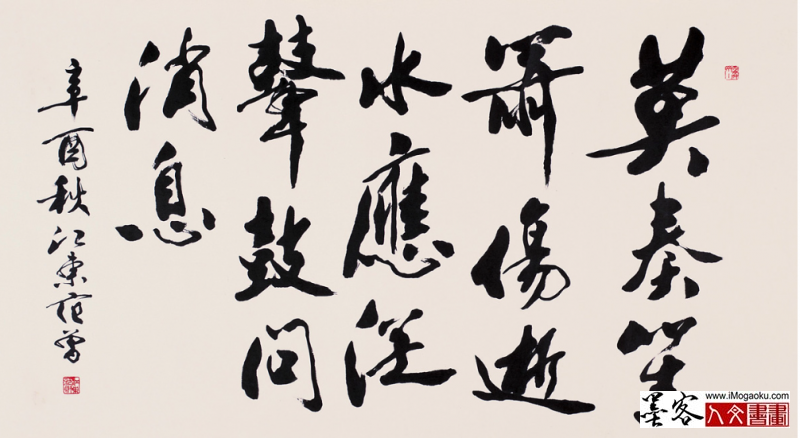 莫奏笙
簫傷逝
水應從
鼙鼓問
消息
辛酉秋江東范曾
墨客
www.iMogaoku.com
人文書畫